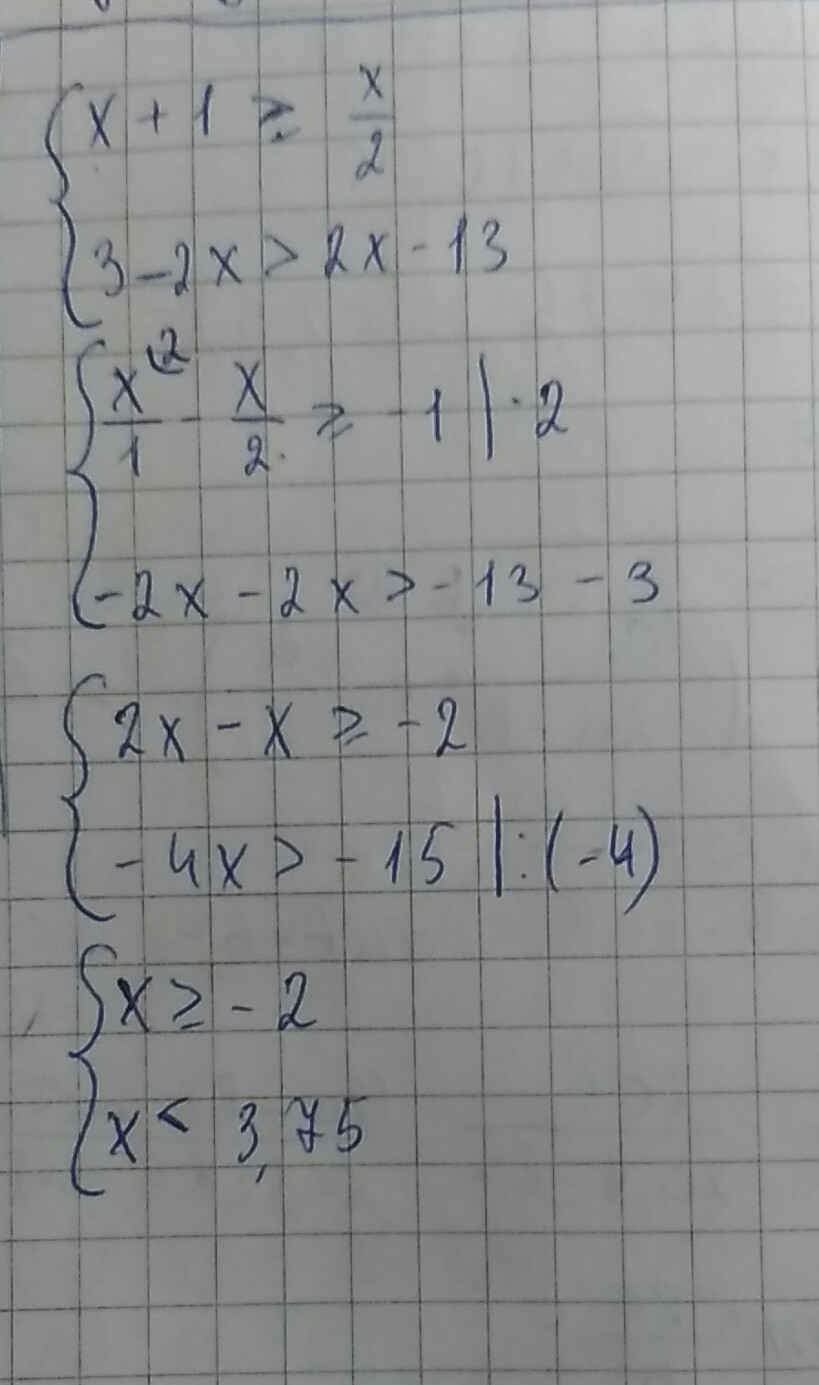 x + 1 ≥ x/2
3 - 2x > 2x - 13
x(2/1 - x/2 ≥ -1 | · 2
-2x - 2x > -13 - 3
2x - x ≥ -2
-4x > -15 | : (-4)
x ≥ -2
x < 3,75